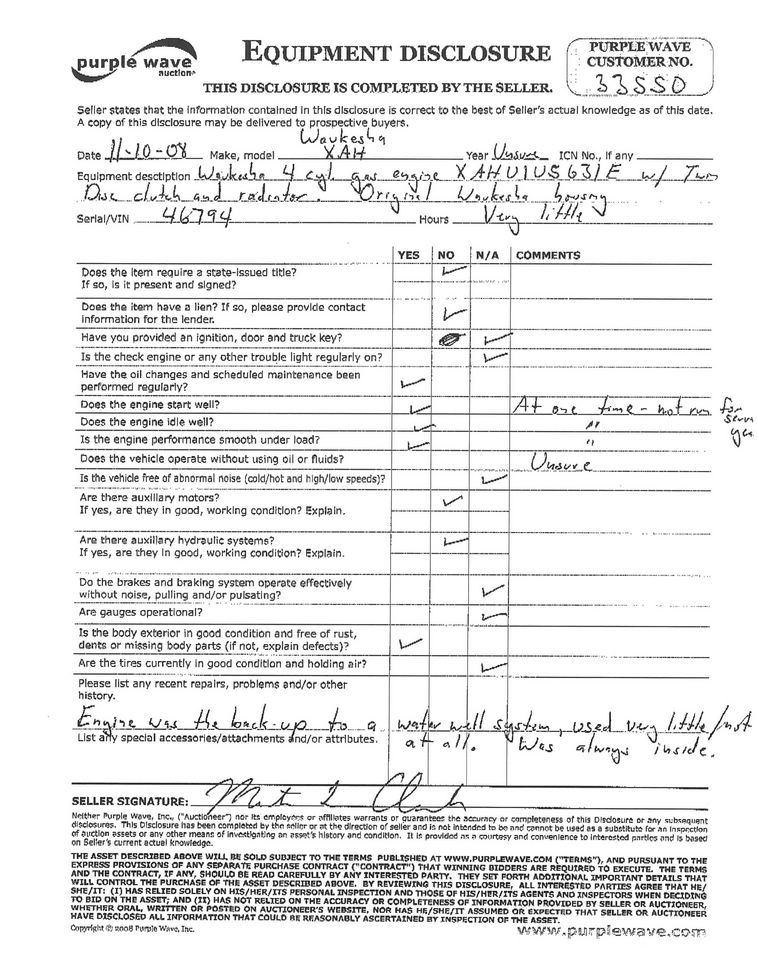 purple wave
auction
EQUIPMENT DISCLOSURE
PURPLE WAVE
CUSTOMER NO.
33550
THIS DISCLOSURE IS COMPLETED BY THE SELLER.
Seller states that the information contained in this disclosure is correct to the best of Seller's actual knowledge as of this date.
A copy of this disclosure may be delivered to prospective buyers.
Waukesha
Date 11-10-08 Make, model XAH Year Unsure ICN No., if any
Equipment desctiption Waukesha 4 cyl gas engine XAHU1US631E w/ Twin
Disc clutch and radiator. Original Waukesha housing
Serial/VIN 46794 Hours Very little
YES NO N/A COMMENTS
Does the item require a state-issued title?
If so, is it present and signed?
Does the item have a lien? If so, please provide contact
information for the lender.
Have you provided an ignition, door and truck key?
Is the check engine or any other trouble light regularly on?
Have the oil changes and scheduled maintenance been
performed regularly?
Does the engine start well? At one time - not run for
Does the engine idle well? "
Is the engine performance smooth under load? "
Does the vehicle operate without using oil or fluids? Unsure
Is the vehicle free of abnormal noise (cold/hot and high/low speeds)?
Are there auxillary motors?
If yes, are they in good, working condition? Explain.
Are there auxillary hydraulic systems?
If yes, are they in good, working condition? Explain.
Do the brakes and braking system operate effectively
without noise, pulling and/or pulsating?
Are gauges operational?
Is the body exterior in good condition and free of rust,
dents or missing body parts (if not, explain defects)?
Are the tires currently in good condition and holding air?
Please list any recent repairs, problems and/or other
history.
Engine was the back-up to a water well system, used very little/not
List any special accessories/attachments and/or attributes. at all. Was always inside.
SELLER SIGNATURE:
Neither Purple Wave, Inc., ("Auctioneer") nor its employees or affiliates warrants or guarantees the accuracy or completeness of this Disclosure or any subsequent
disclosures. This Disclosure has been completed by the seller or at the direction of seller and is not intended to be and cannot be used as a substitute for an inspection
of auction assets or any other means of investigating an asset's history and condition. It is provided as a courtesy and convenience to interested parties and is based
on Seller's current actual knowledge.
THE ASSET DESCRIBED ABOVE WILL BE SOLD SUBJECT TO THE TERMS PUBLISHED AT WWW.PURPLEWAVE.COM ("TERMS"), AND PURSUANT TO THE
EXPRESS PROVISIONS OF ANY SEPARATE PURCHASE CONTRACT ("CONTRACT") THAT WINNING BIDDERS ARE REQUIRED TO EXECUTE. THE TERMS
AND THE CONTRACT, IF ANY, SHOULD BE READ CAREFULLY BY ANY INTERESTED PARTY. THEY SET FORTH ADDITIONAL IMPORTANT DETAILS THAT
WILL CONTROL THE PURCHASE OF THE ASSET DESCRIBED ABOVE. BY REVIEWING THIS DISCLOSURE, ALL INTERESTED PARTIES AGREE THAT HE/
SHE/IT: (I) HAS RELIED SOLELY ON HIS/HER/ITS PERSONAL INSPECTION AND THOSE OF HIS/HER/ITS AGENTS AND INSPECTORS WHEN DECIDING
TO BID ON THE ASSET; AND (II) HAS NOT RELIED ON THE ACCURACY OR COMPLETENESS OF INFORMATION PROVIDED BY SELLER OR AUCTIONEER,
WHETHER ORAL, WRITTEN OR POSTED ON AUCTIONEER'S WEBSITE, NOR HAS HE/SHE/IT ASSUMED OR EXPECTED THAT SELLER OR AUCTIONEER
HAVE DISCLOSED ALL INFORMATION THAT COULD BE REASONABLY ASCERTAINED BY INSPECTION OF THE ASSET.
Copyright © 2008 Purple Wave, Inc.
www.purplewave.com